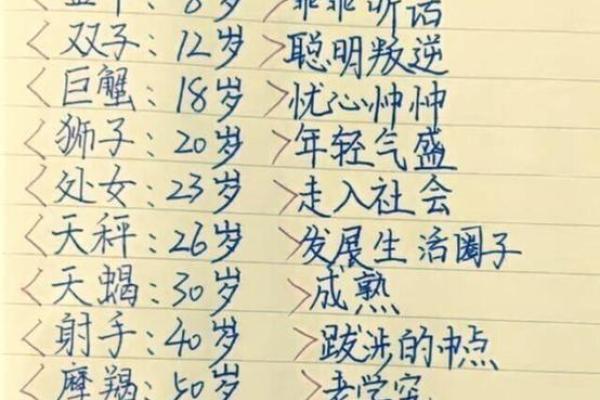 <金牛:8岁>乖乖听话
<双子:12岁>聪明叛逆
<巨蟹:18岁>忧心忡忡
<狮子:20岁>年轻气盛
<处女:23岁>走入社会
<天秤:26岁>发展生活圈子
<天蝎:30岁>成熟
<射手:40岁>跋涉的中点
<摩羯:50岁>老学究